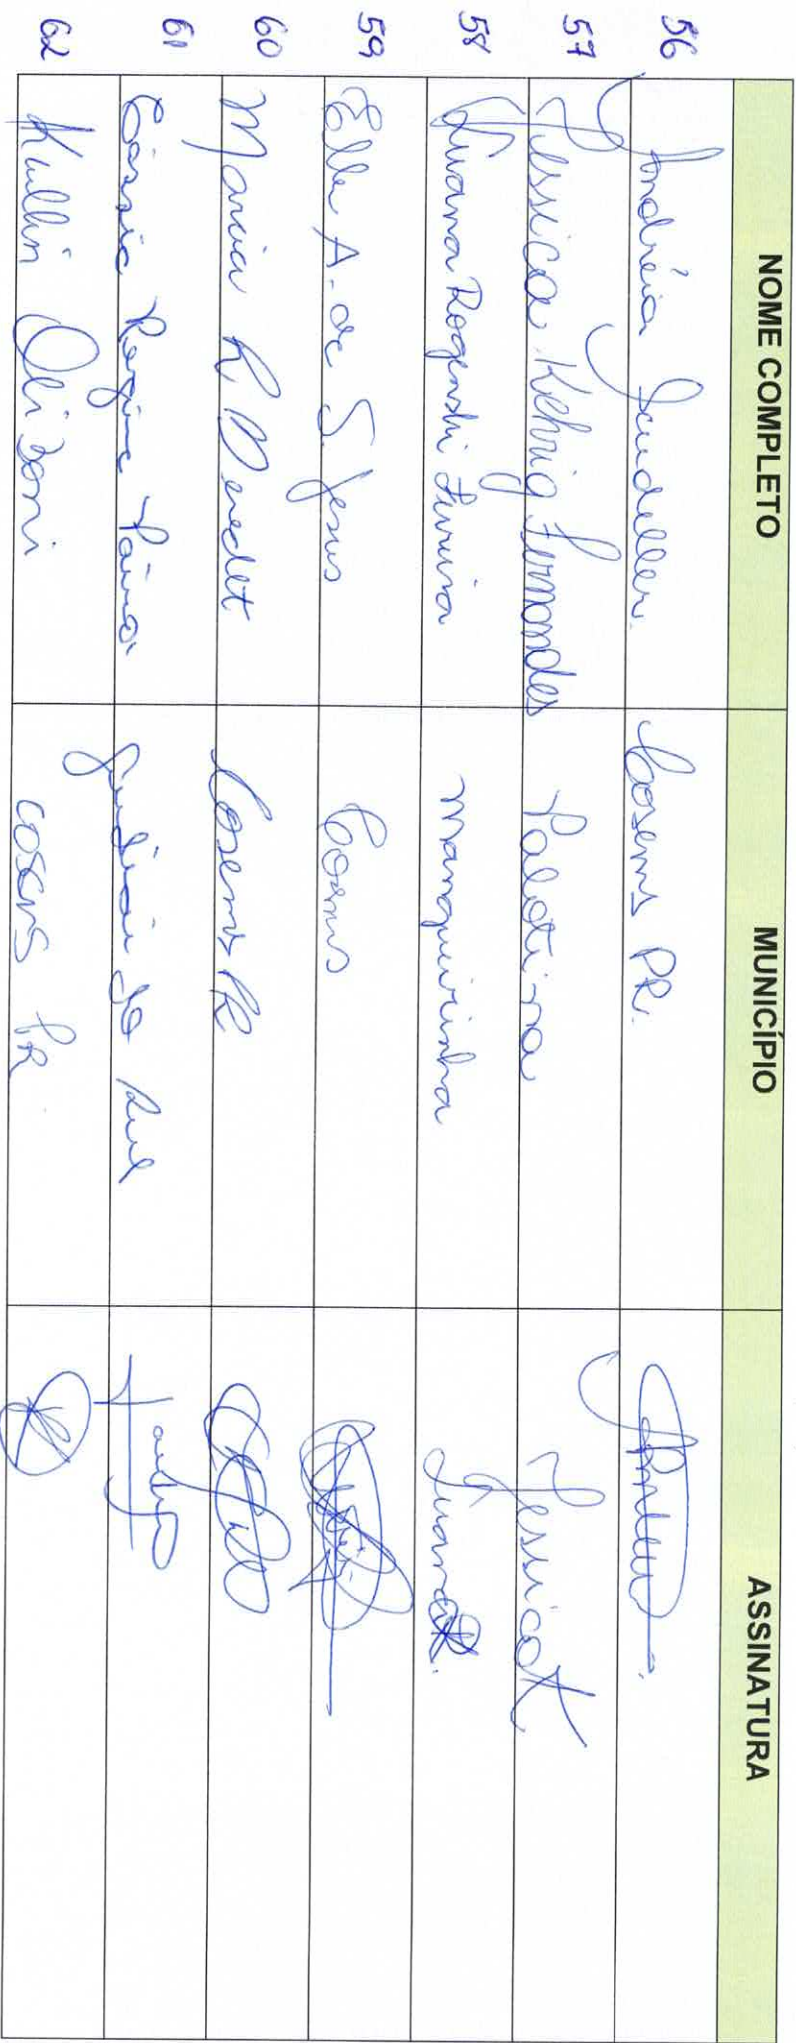 NOME COMPLETO MUNICÍPIO ASSINATURA
56 Andréia Cosems PR.
57 Jessica Kehrig Fernandes Palotina Jessica K
58 Luana Rogenski Ferreira Mangueirinha Luana R.
59 Elle A. de S. Jesus Cosems
60 Marcia R Benedet Cosems PR
61 Cássia Regina Jundiaí do Sul
62 Kaullin Olizoni COSEMS PR